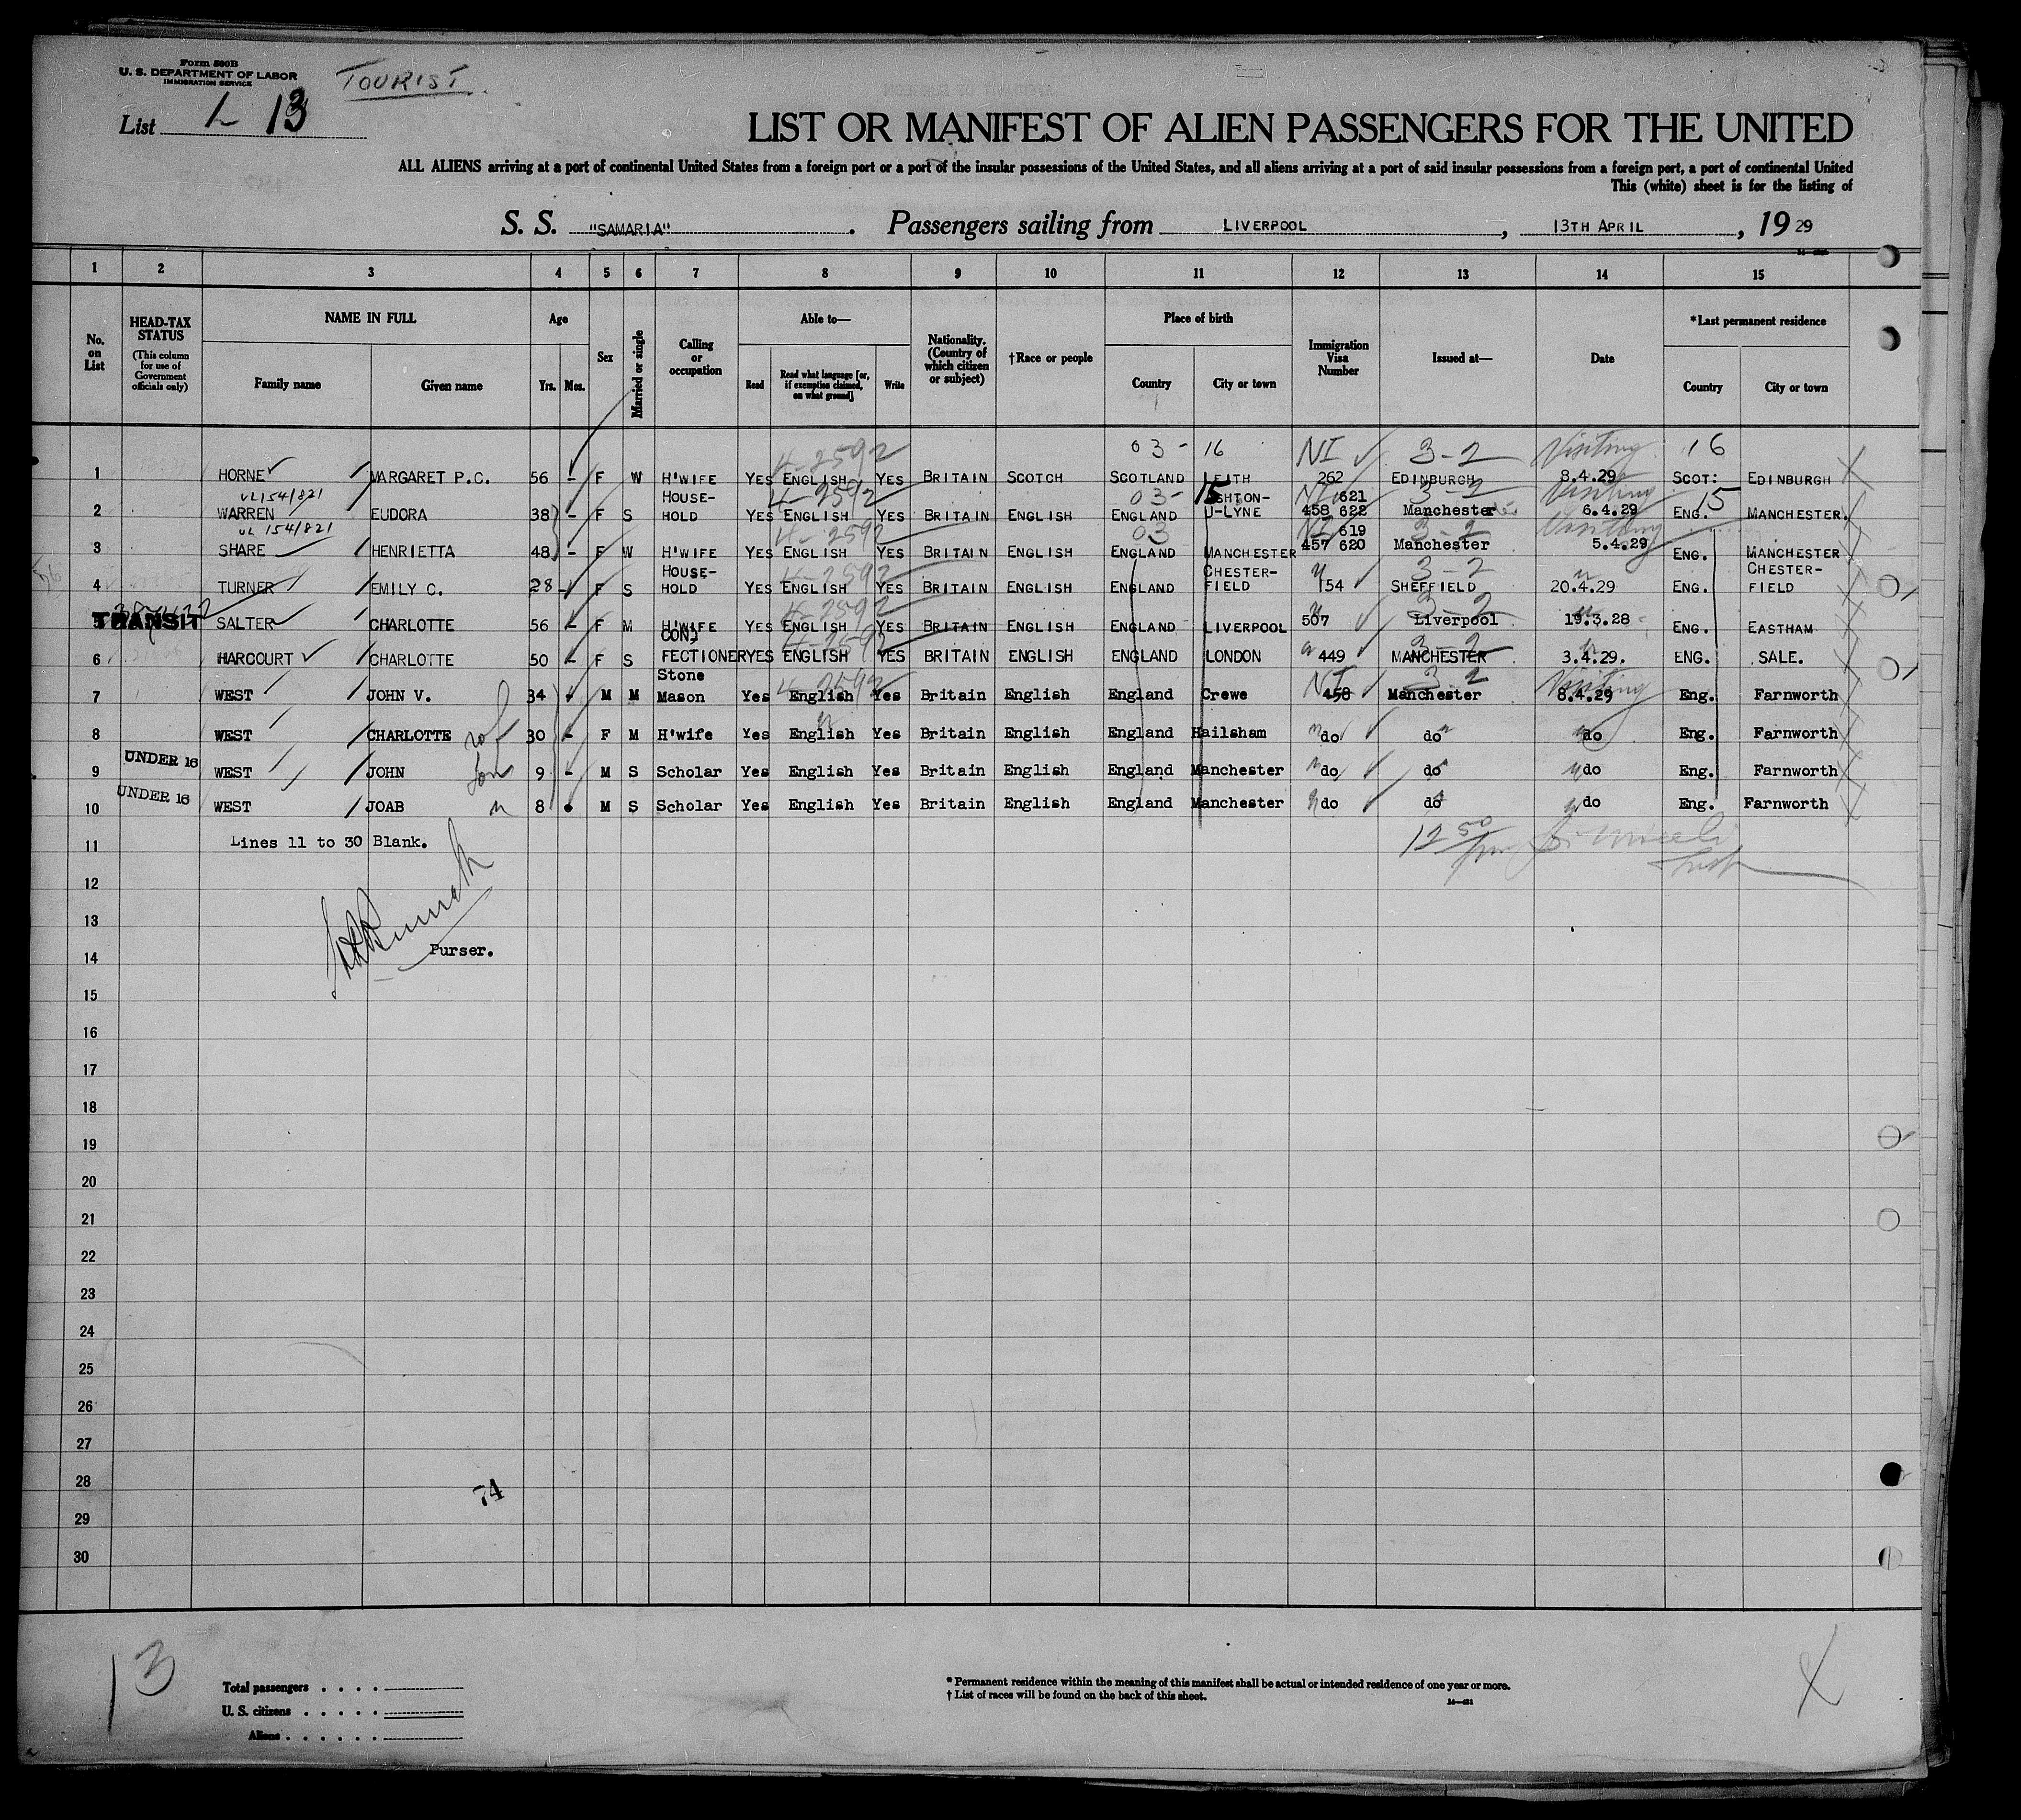 Form 500B
U. S. DEPARTMENT OF LABOR
IMMIGRATION SERVICE
TOURIST
List 1- 13
LIST OR MANIFEST OF ALIEN PASSENGERS FOR THE UNITED
ALL ALIENS arriving at a port of continental United States from a foreign port or a port of the insular possessions of the United States, and all aliens arriving at a port of said insular possessions from a foreign port, a port of continental United
This (white) sheet is for the listing of
S. S. "SAMARIA". Passengers sailing from LIVERPOOL, 13TH APRIL, 1929
1 2 3 4 5 6 7 8 9 10 11 12 13 14 15
No. on List
HEAD-TAX STATUS (This column for use of Government officials only)
NAME IN FULL
Family name Given name
Age
Yrs. Mos.
Sex
Married or single
Calling or occupation
Able to—
Read Read what language [or, if exemption claimed, on what ground] Write
Nationality. (Country of which citizen or subject)
†Race or people
Place of birth
Country City or town
Immigration Visa Number
Issued at—
Date
*Last permanent residence
Country City or town
4-2592 03- 16 NI 3-2 Visiting 16
1 HORNE MARGARET P.C. 56 - F W H'WIFE YES ENGLISH YES BRITAIN SCOTCH SCOTLAND LEITH 262 EDINBURGH 8.4.29 SCOT: EDINBURGH
VL154/821 HOUSE- 4-2592 03- 15 ASHTON- NI 621 3-2 Visiting 15
2 WARREN EUDORA 38 - F S HOLD YES ENGLISH YES BRITAIN ENGLISH ENGLAND U-LYNE 458 622 Manchester 6.4.29 ENG. MANCHESTER.
VL 154/821 4-2592 03 NI 619 3-2 Visiting
3 SHARE HENRIETTA 48 - F W H'WIFE YES ENGLISH YES BRITAIN ENGLISH ENGLAND MANCHESTER 457 620 Manchester 5.4.29 ENG. MANCHESTER
HOUSE- 4-2592 CHESTER- 3-2 CHESTER-
4 TURNER EMILY C. 28 - F S HOLD YES ENGLISH YES BRITAIN ENGLISH ENGLAND FIELD 154 SHEFFIELD 20.4.29 ENG. FIELD
4-2592 3-2
5 TRANSIT SALTER CHARLOTTE 56 - F M H'WIFE YES ENGLISH YES BRITAIN ENGLISH ENGLAND LIVERPOOL 507 Liverpool 19.3.28 ENG. EASTHAM
CON- 4-2592 3-2
6 HARCOURT CHARLOTTE 50 - F S FECTIONER YES ENGLISH YES BRITAIN ENGLISH ENGLAND LONDON 449 MANCHESTER 3.4.29. ENG. SALE.
Stone 4-2592 NI 3-2 Visiting
7 WEST JOHN V. 34 - M M Mason Yes English Yes Britain English England Crewe 458 Manchester 8.4.29 Eng. Farnworth
8 WEST CHARLOTTE 30 - F M H'wife Yes English Yes Britain English England Hailsham do do do Eng. Farnworth
UNDER 16
9 WEST JOHN son 9 - M S Scholar Yes English Yes Britain English England Manchester do do do Eng. Farnworth
UNDER 16
10 WEST JOAB 8 M S Scholar Yes English Yes Britain English England Manchester do do do Eng. Farnworth
11 Lines 11 to 30 Blank. 12 50 pm
12
13
Purser.
14
15
16
17
18
19
20
21
22
23
24
25
26
27
28
74
29
30
13
Total passengers
U. S. citizens
Aliens
* Permanent residence within the meaning of this manifest shall be actual or intended residence of one year or more.
† List of races will be found on the back of this sheet.
14—421